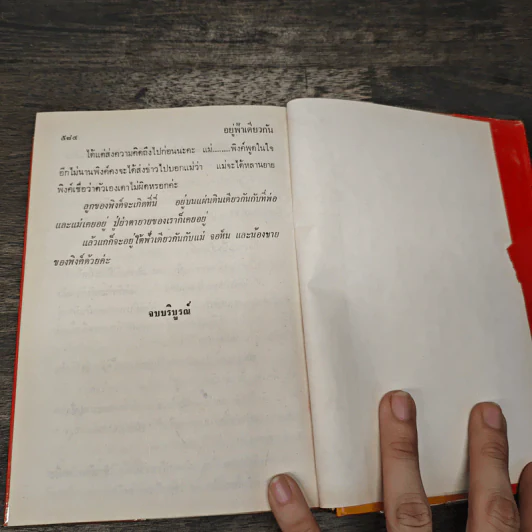 ๕๘๔
อยู่ฟ้าเดียวกัน
ได้แต่ส่งความคิดถึงไปก่อนนะคะ แม่........พิงค์พูดในใจ
อีกไม่นานพิงค์คงจะได้ส่งข่าวไปบอกแม่ว่า แม่จะได้หลานยาย
พิงค์เชื่อว่าตัวเองเดาไม่ผิดหรอกค่ะ
ลูกของพิงค์จะเกิดที่นี่ อยู่บนแผ่นดินเดียวกันกับที่พ่อ
และแม่เคยอยู่ ปู่ย่าตายายของเราก็เคยอยู่
แล้วแกก็จะอยู่ใต้ฟ้าเดียวกันกับแม่ จอห์น และน้องชาย
ของพิงค์ด้วยค่ะ
จบบริบูรณ์